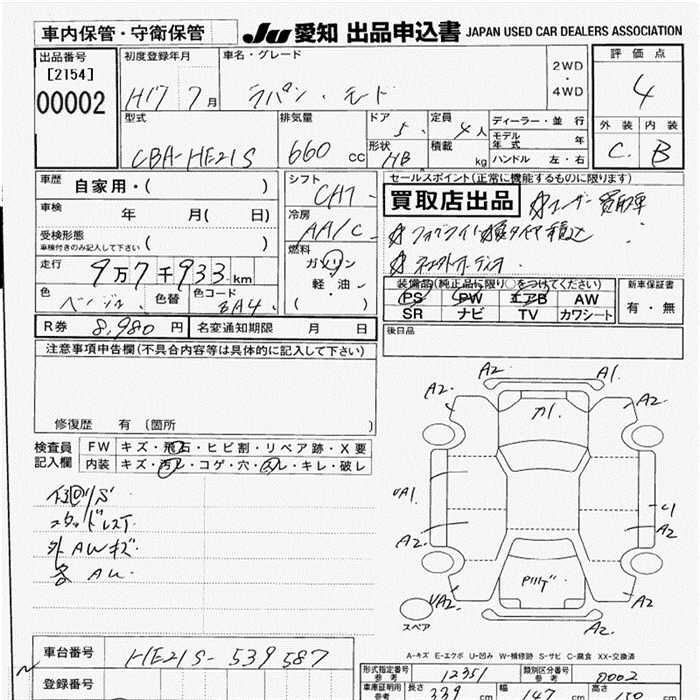 車内保管・守衛保管
JU 愛知 出品申込書 JAPAN USED CAR DEALERS ASSOCIATION
出品番号
[2154]
00002
初度登録年月
H17 7 月
車名・グレード
ラパン・モード
2WD
・
4WD
評価点
4
型式
CBA-HE21S
排気量
660 cc
ドア
5
定員
4 人
形状
HB
積載
kg
ディーラー・並 行
モデル年式 年
ハンドル 左・右
外装 内装
C B
車歴 自家用・( )
車検 年 月( 日)
受検形態
車検付きのみ記入して下さい ( )
走行 9万7千933 km
色 ベージュ 色替 色コード
シフト
冷房
AA/C
燃料
ガソリン
軽・油
( )
セールスポイント(正常に機能するものに限ります)
買取店出品
装備品(純正品に限り○をつけてください)
PS PW エアB AW
SR ナビ TV カワシート
新車保証書
有・無
R券 8,980 円 名変通知期限 月 日
後日品
注意事項申告欄(不具合内容等は具体的に記入して下さい)
修復歴 有 〔箇所 〕
検査員記入欄
FW キズ・飛石・ヒビ割・リペア跡・X要
内装 キズ・汚レ・コゲ・穴・スレ・キレ・破レ
外AWキズ
A2 A1
A2 A2
A1
A1
A2 A2
A2 A2
A2
スペア
A-キズ E-エクボ U-凹み W-補修跡 S-サビ C-腐食 XX-交換済
車台番号 HE21S-539587
登録番号
形式指定番号 参考 12351 類別区分番号 参考 0002
車庫証明用 参考 長さ 339 cm 幅 147 cm 高さ 150 cm